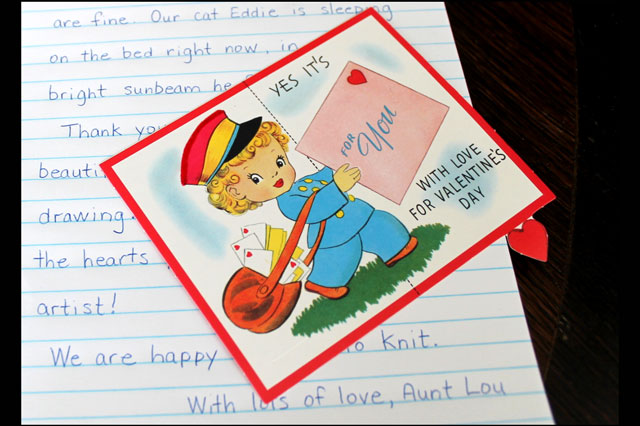 are fine. Our cat Eddie is sleeping
on the bed right now, in
bright sunbeam he
Thank you
drawing.
the hearts
artist!
We are happy to knit.
With lots of love, Aunt Lou
YES IT'S
FOR
You
WITH LOVE
FOR VALENTINE'S
DAY